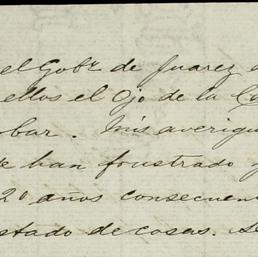 el Gobr. de Juarez
ellos el Ojo de la
bar. Mis averigu
e han frustrado
2º años consecuen
stado de cosas. Se